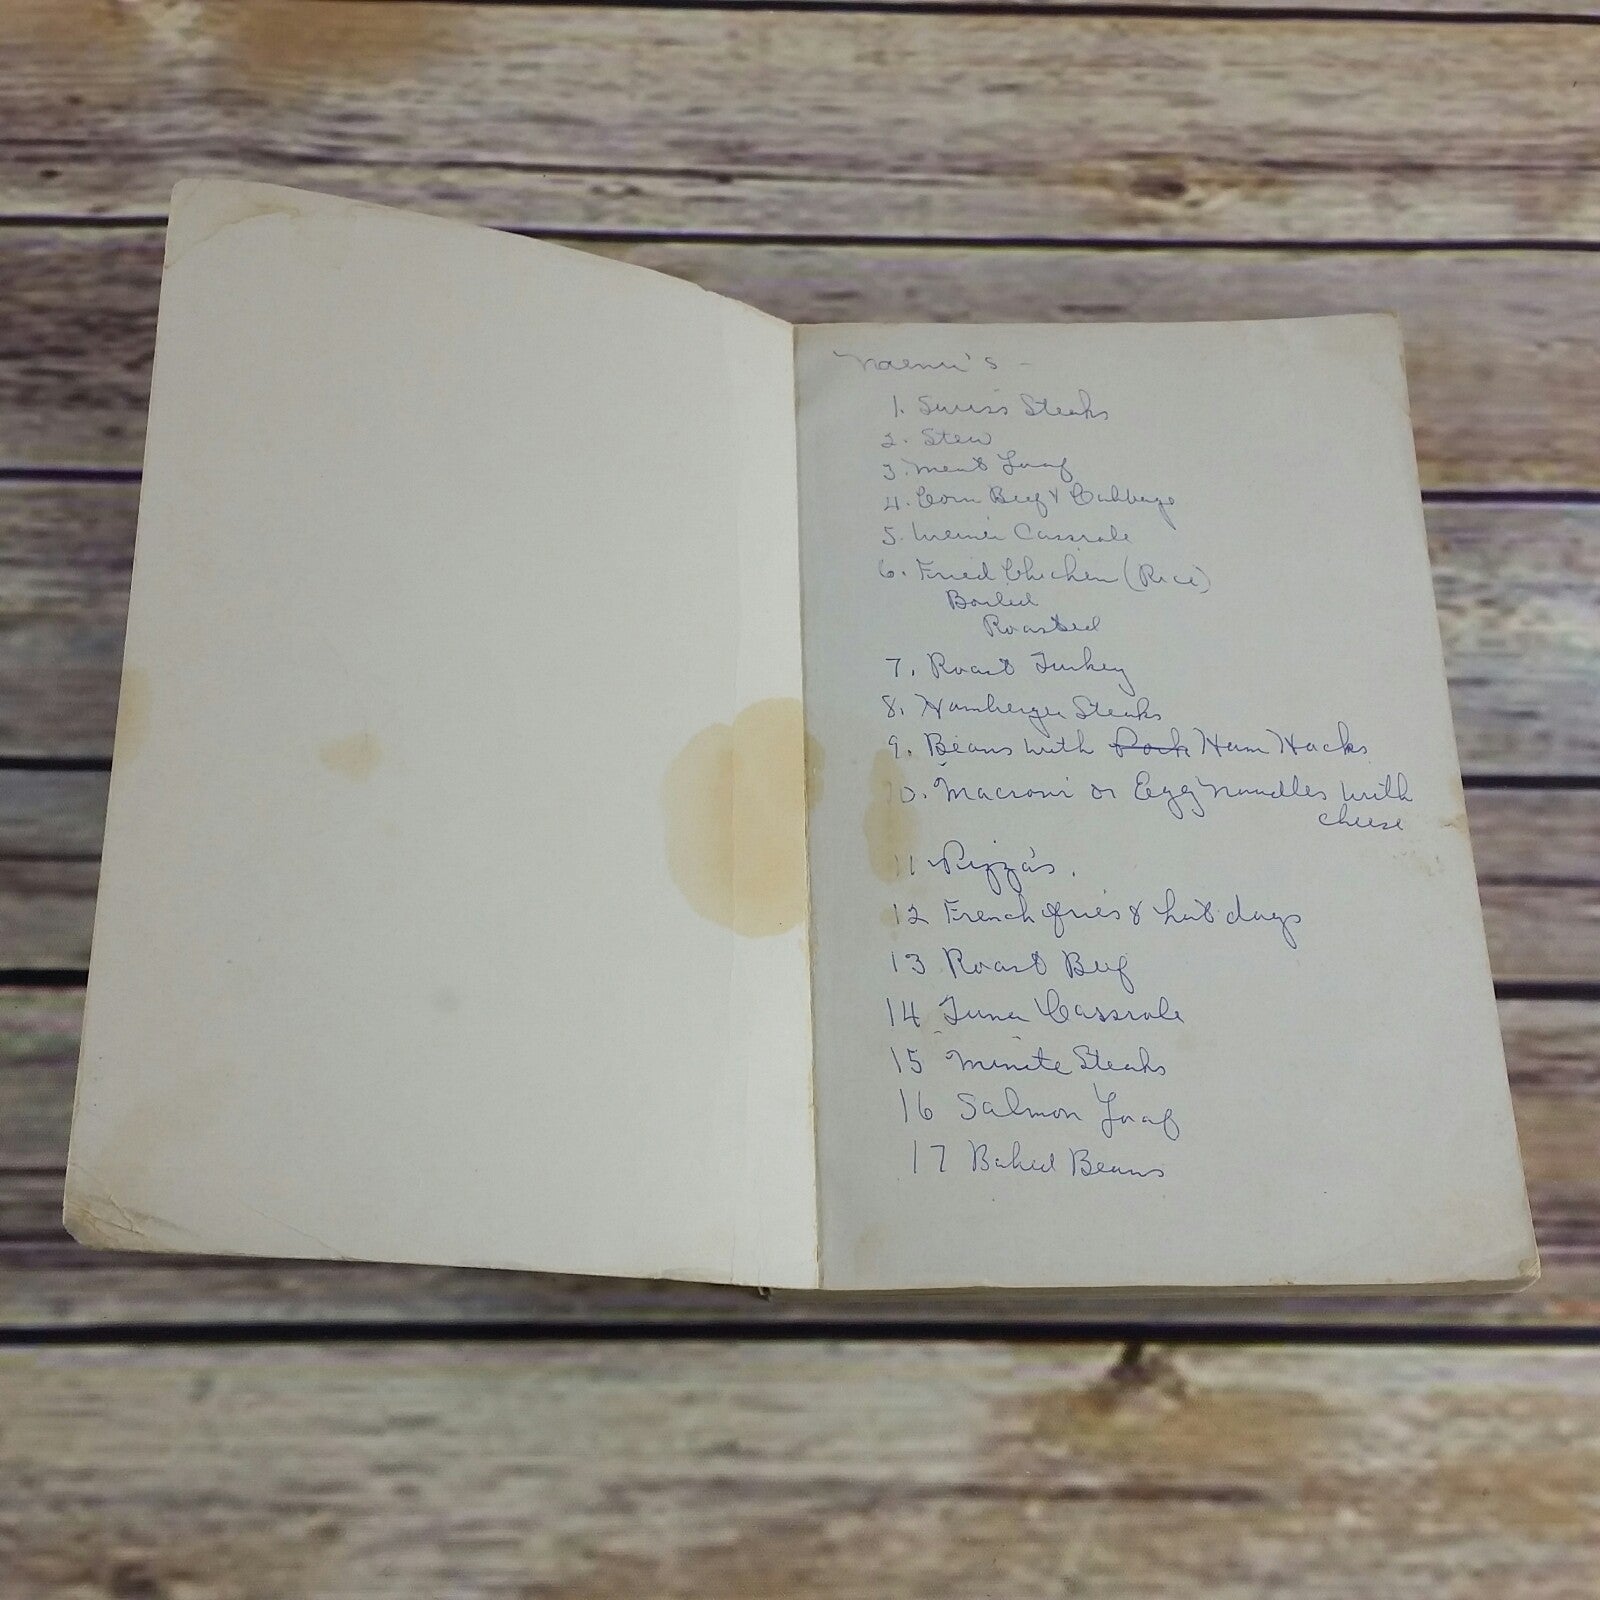 1. Swiss Steaks
2. Stew
3. Meat Loaf
4. Corn Beef & Cabbage
5. Weiner Cassrole
6. Fried Chicken (Rice)
Boiled
Roasted
7. Roast Turkey
8. Hamberger Steaks
9. Beans with Pork Ham Hocks
10. Macroni or Egg Noodles with
cheese
11 Pizza's.
12 French fries & hot dogs
13 Roast Beef
14 Tuna Cassrole
15 Minite Steaks
16 Salmon Loaf
17 Baked Beans